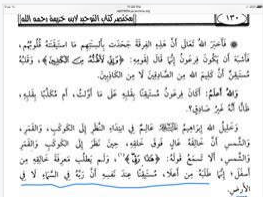 ١٣٠ مختصر كتاب التوحيد لابن خزيمة رحمه الله
فأخبر الله تعالى أن هذه الفرقة جحدت بألسنتهم ما استيقنته قلوبهم،
فأشبه أن يكون فرعون إنما قال لقومه: ﴿وَإِنِّي لَأَظُنُّهُ مِنَ الْكَاذِبِينَ﴾، وقلبه
مستيقن أن كليم الله من الصادقين لا من الكاذبين.
والله أعلم: أكان فرعون مستيقنا بقلبه على ما أولت، أم مكذبا بقلبه،
ظانا أنه غير صادق؟
وخليل الله إبراهيم عالم في ابتداء النظر إلى الكوكب، والقمر،
والشمس، أن خالقه عال فوق خلقه، حين نظر إلى الكوكب والقمر
والشمس، ألا تسمع قوله: ﴿هَذَا رَبِّي﴾(١)، ولم يطلب معرفة خالقه من
أسفل، إنما طلبه من أعلا، مستيقنا عند نفسه أن ربه في السماء لا في
الأرض.